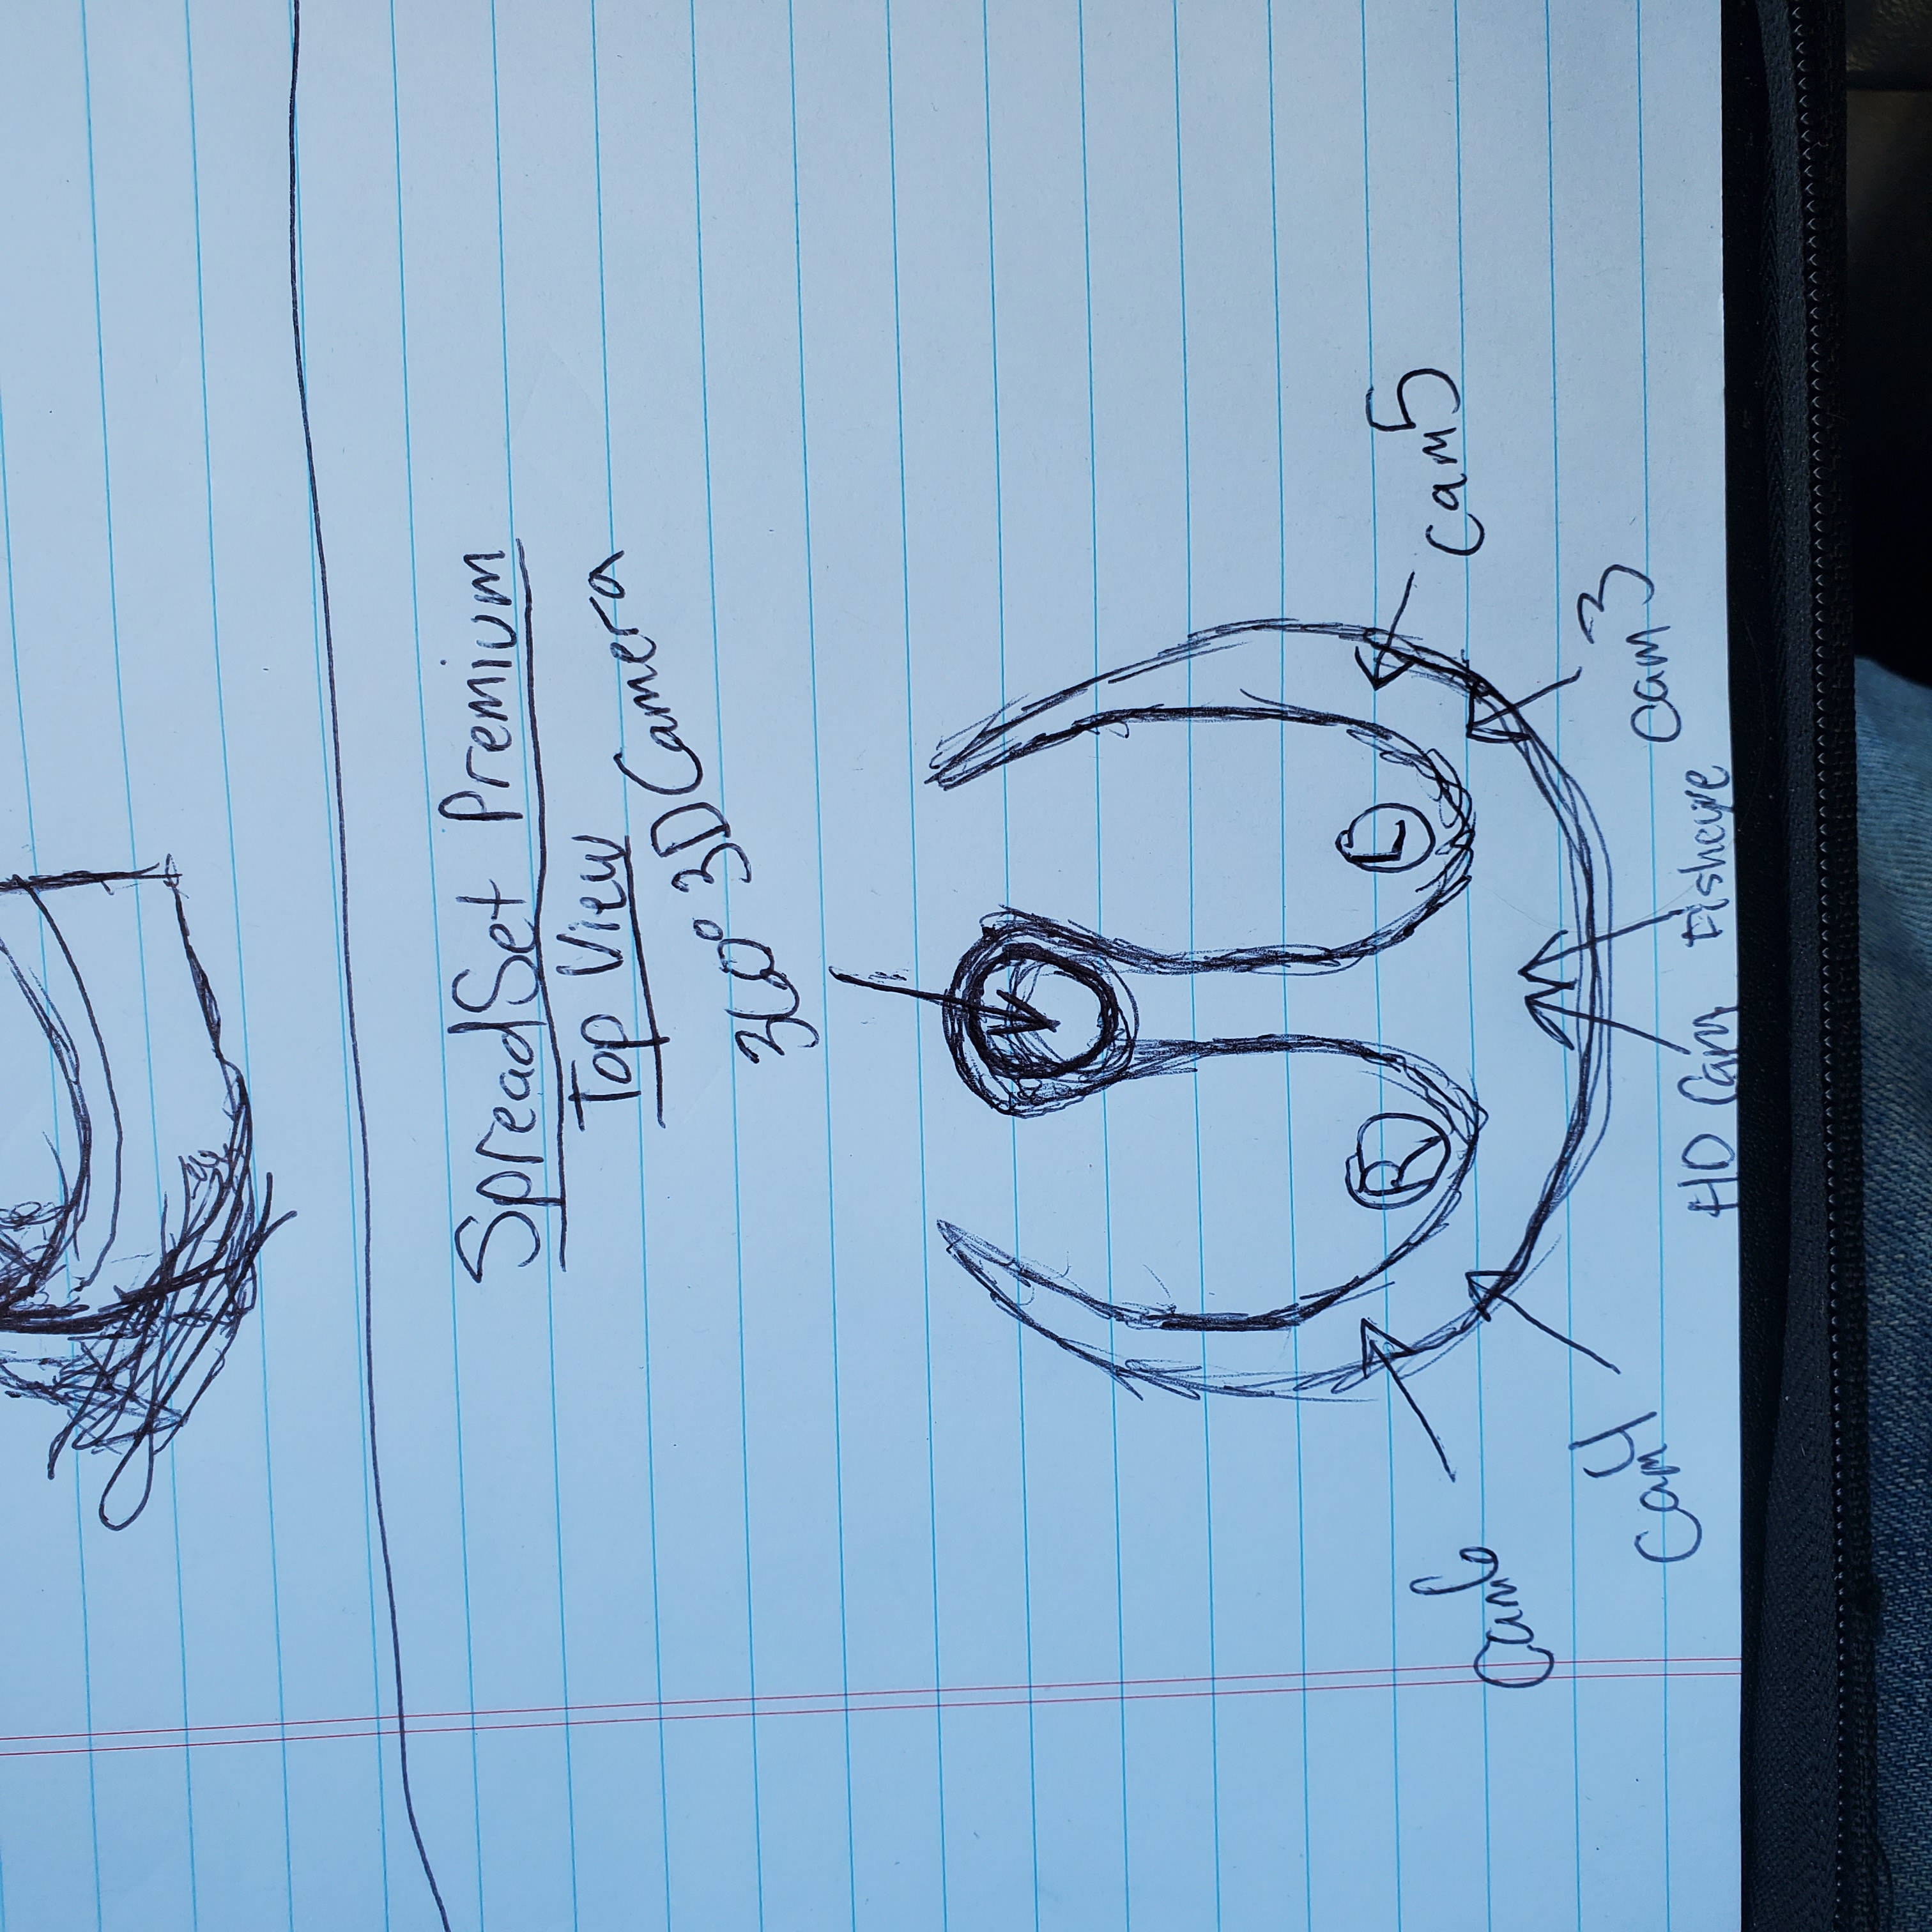 SpreadSet Premium
Top View
360° 3D Camera
R
L
Cam6
Cam5
Cam4
Cam3
HD Cam
Fisheye